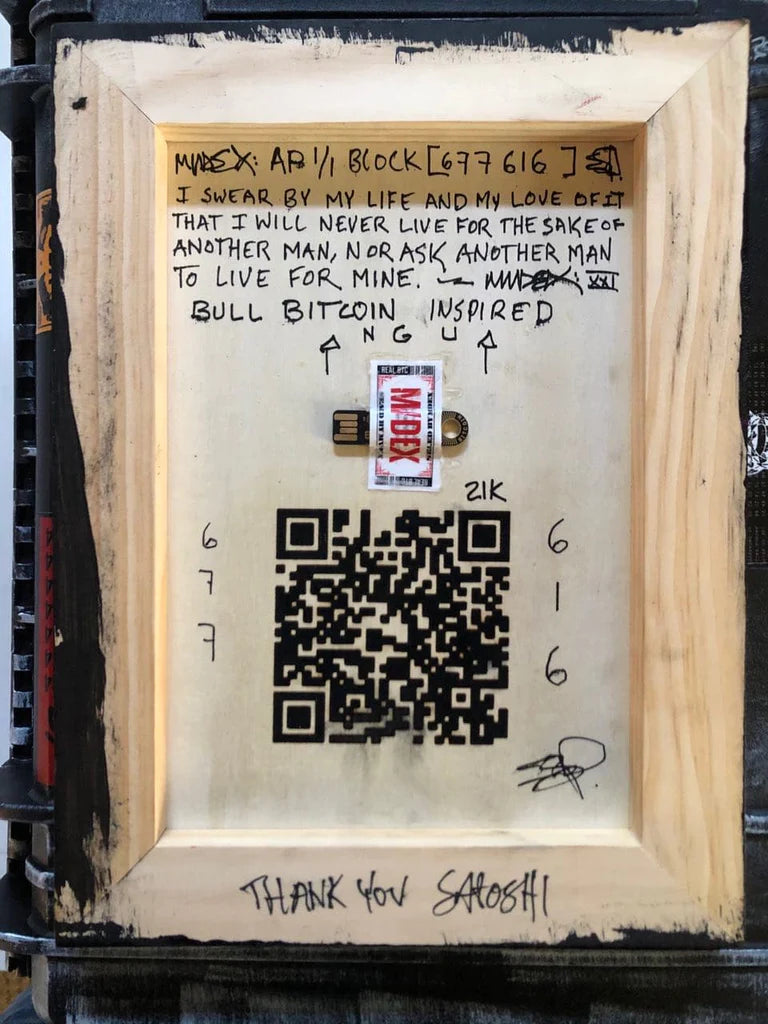 AP 1/1 BLOCK [677616]
I SWEAR BY MY LIFE AND MY LOVE OF IT
THAT I WILL NEVER LIVE FOR THE SAKE OF
ANOTHER MAN, NOR ASK ANOTHER MAN
TO LIVE FOR MINE. XXI
BULL BITCOIN INSPIRED
N G U
REAL BTC
MDEX
21K
6 6
7 1
7 6
THANK YOU SATOSHI